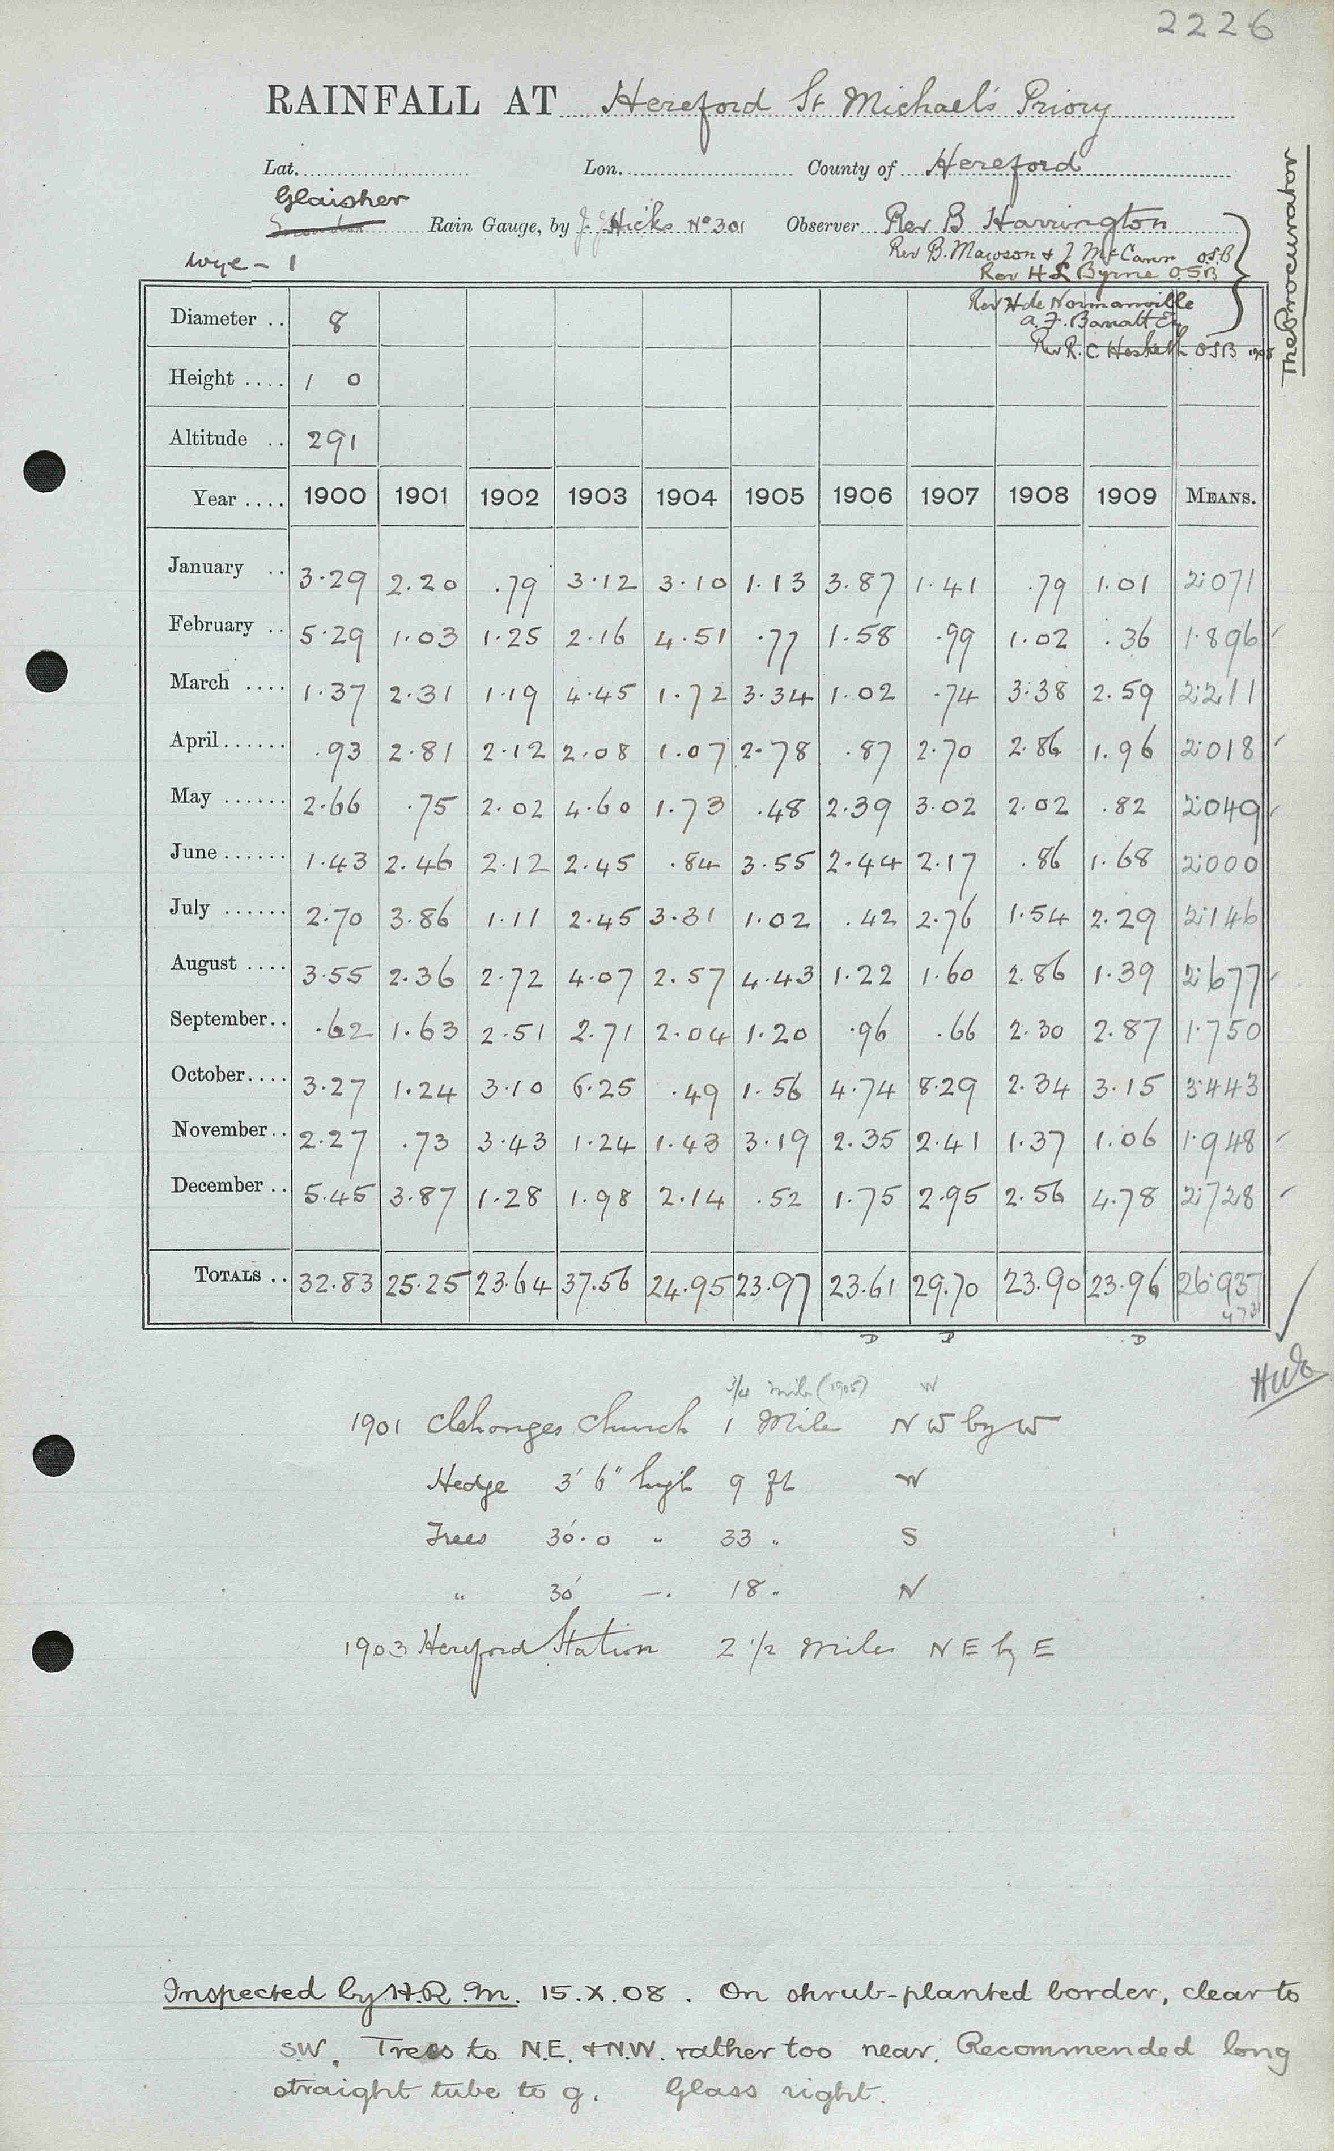 2226
RAINFALL AT Hereford St Michael's Priory
Lat. Lon. County of Hereford
Glaisher
Rain Gauge, by J. J. Hicks No 301 Observer Rev B Harrington
Rev B. Mawson & J McCann O.S.B
Wye - 1
Rev H L Byrne O.S.B
Rev H de Normanville
The Procurator
Diameter .. 8
Rev R. C Hesketh OSB 1908
Height .... 1 0
Altitude .. 291
Year .... 1900 1901 1902 1903 1904 1905 1906 1907 1908 1909 MEANS.
January .. 3.29 2.20 .79 3.12 3.10 1.13 3.87 1.41 .79 1.01 2.071
February .. 5.29 1.03 1.25 2.16 4.51 .77 1.58 .99 1.02 .36 1.896
March .... 1.37 2.31 1.19 4.45 1.72 3.34 1.02 .74 3.38 2.59 2.211
April ...... .93 2.81 2.12 2.08 1.07 2.78 .87 2.70 2.86 1.96 2.018
May ...... 2.66 .75 2.02 4.60 1.73 .48 2.39 3.02 2.02 .82 2.049
June ...... 1.43 2.46 2.12 2.45 .84 3.55 2.44 2.17 .86 1.68 2.000
July ...... 2.70 3.86 1.11 2.45 3.31 1.02 .42 2.76 1.54 2.29 2.146
August .... 3.55 2.36 2.72 4.07 2.57 4.43 1.22 1.60 2.86 1.39 2.677
September .. .62 1.63 2.51 2.71 2.04 1.20 .96 .66 2.30 2.87 1.750
October .... 3.27 1.24 3.10 6.25 .49 1.56 4.74 8.29 2.34 3.15 3.443
November .. 2.27 .73 3.43 1.24 1.43 3.19 2.35 2.41 1.37 1.06 1.948
December .. 5.45 3.87 1.28 1.98 2.14 .52 1.75 2.95 2.56 4.78 2.728
TOTALS .. 32.83 25.25 23.64 37.56 24.95 23.97 23.61 29.70 23.90 23.96 26.937
D D D
3/4 mile (1905) W
1901 Clehonger Church 1 Mile N W by W
Hedge 3' 6" high 9 ft W
Trees 30.0 " 33 " S
" 30 - . 18 " N
1903 Hereford Station 2 1/2 miles N E by E
Inspected by H.R.M. 15.X.08. On shrub-planted border, clear to
SW. Trees to N.E. & N.W. rather too near. Recommended long
straight tube to g. Glass right.